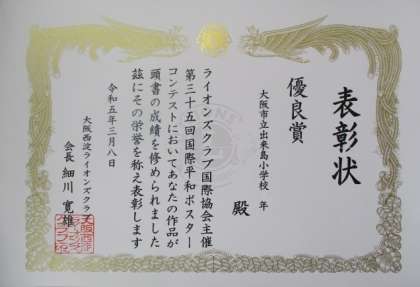 表彰状
優良賞
大阪市立出来島小学校 年
殿
ライオンズクラブ国際協会主催
第三十五回国際平和ポスター
コンテストにおいてあなたの作品が
頭書の成績を修められました
茲にその栄誉を称え表彰します
令和五年三月八日
大阪西淀ライオンズクラブ
会長 細川 寛雄